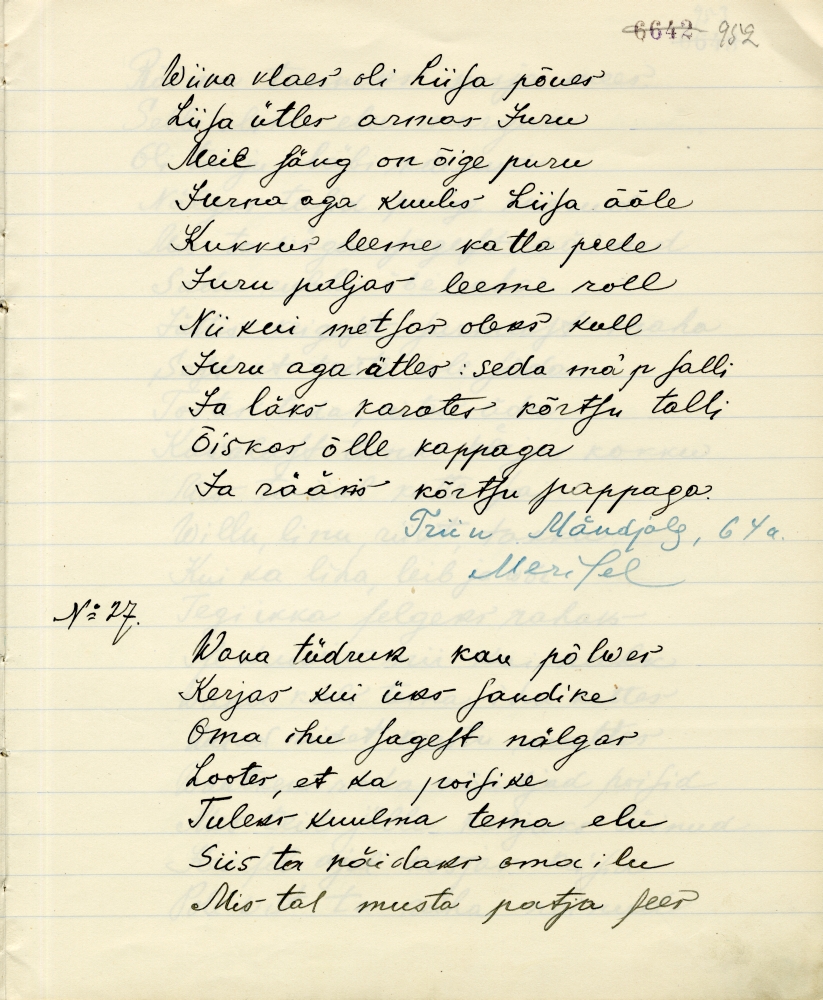 6642 952
Wiina klaes oli Liisa põues
Liisa ütles armas Juru
Meil säng on õige puru
Jurna aga kuulis Liisa ääle
Kukkus leeme katla peele
Juru paljas leeme roll
Nii kui metsas oleks kull
Juru aga ütles: seda ma'p salli
Ja läks karates kõrtsu talli
Õiskas õlle kappaga
Ja rääkis kõrtsu pappaga.
Triin Mändjalg, 64a.
Merisel
№ 27.
Wana tüdruk kau põlwes
Kerjas kui üks sandike
Oma ihu sagest nälgas
Lootes, et ka poisike
Tuleks kuulma tema elu
Siis ta näidaks oma ilu
Mis tal musta patja sees